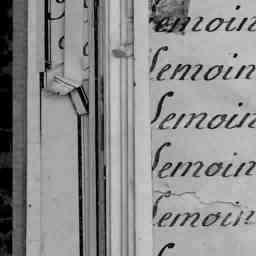 Temoin
Temoin
Temoin
Temoin
Temoin